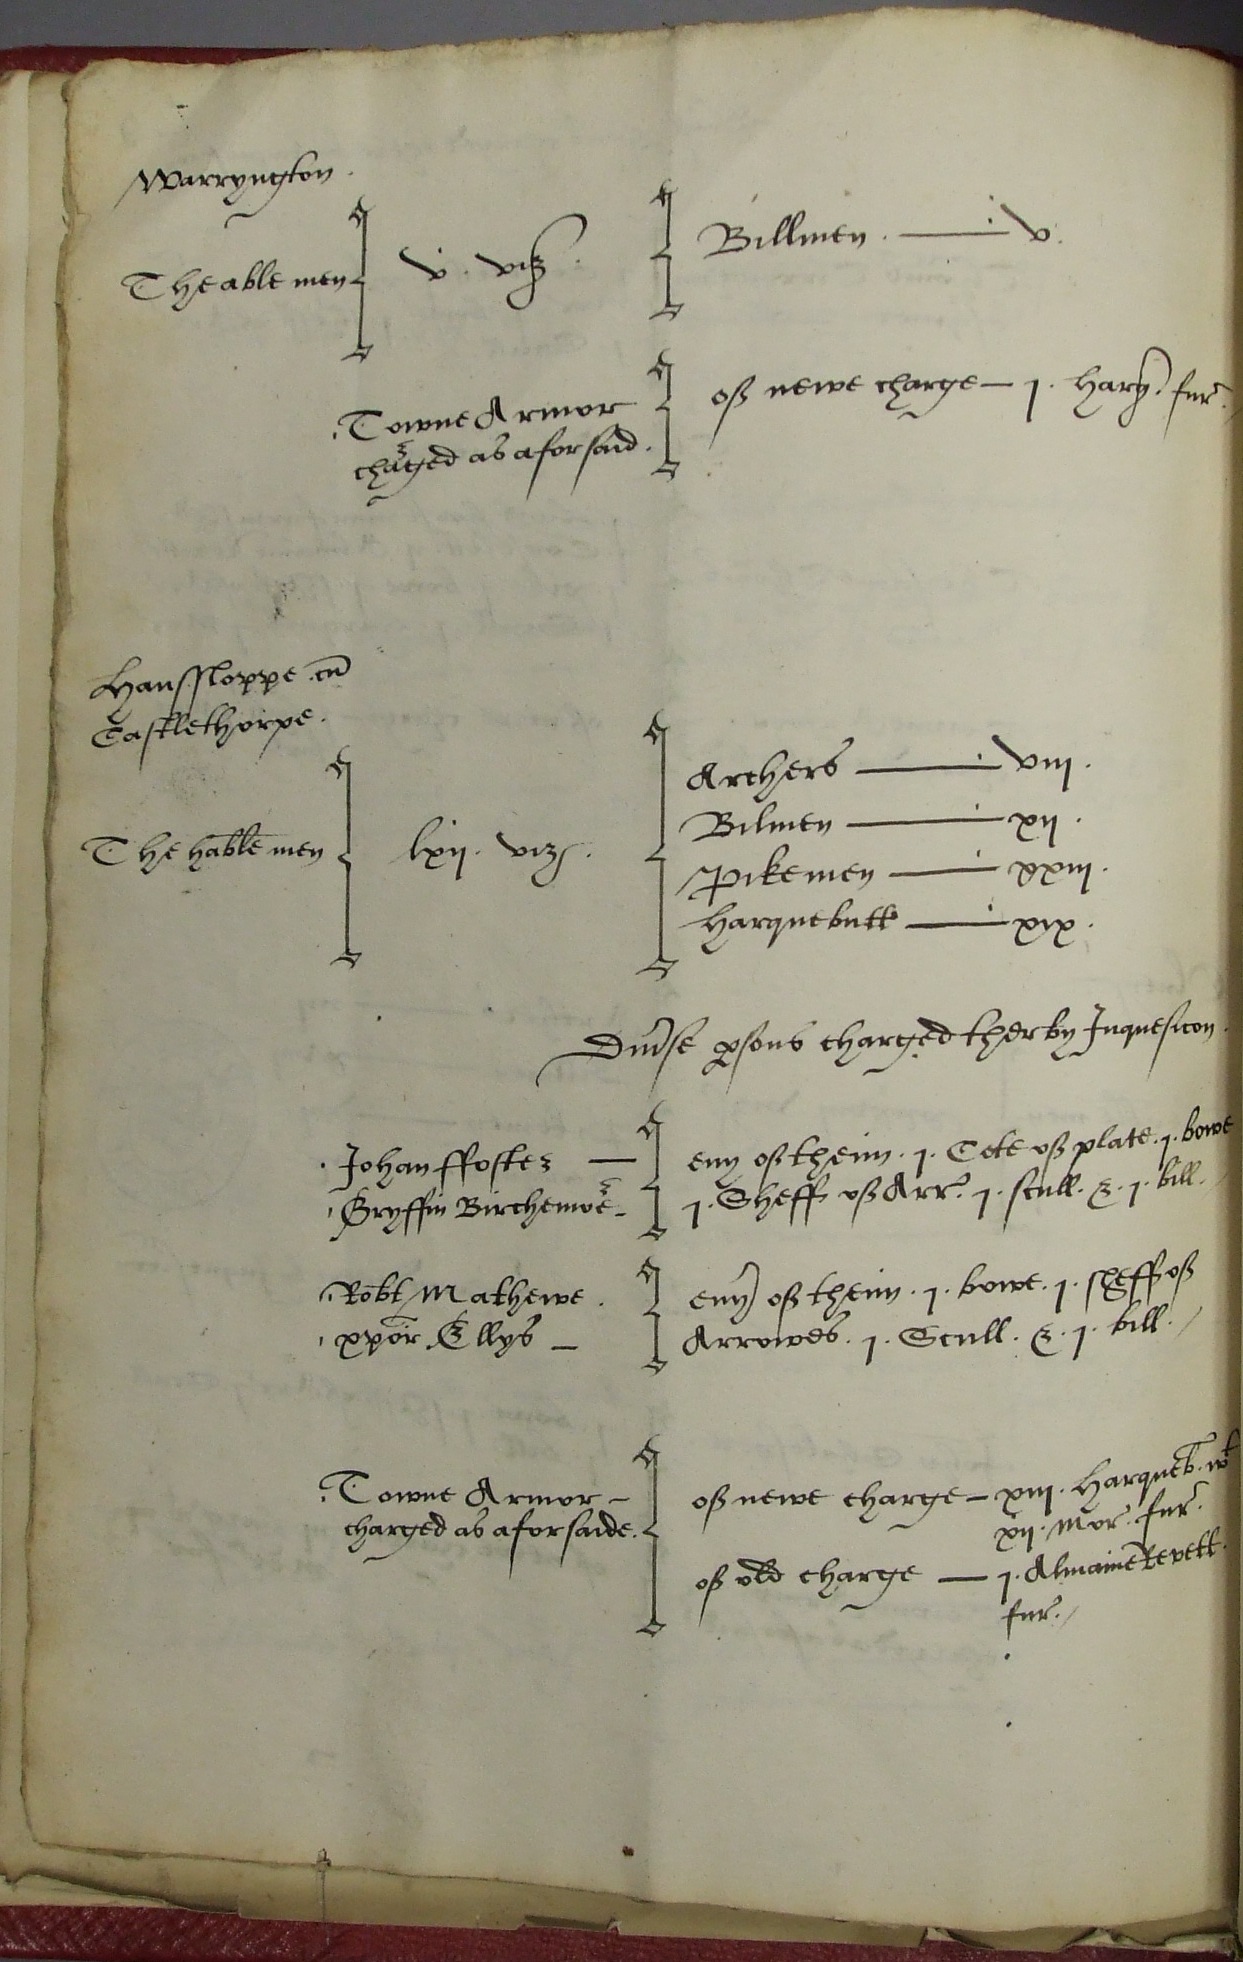 Warryngton.
The able men v. viz. Billmen. — v.
Towne Armor
charged as aforsaid.
of newe charge — j. harq. fur.
Hanssloppe. cu
Castlethorpe.
The hable men lxij. viz. Archers — viij.
Bilmen — xij.
Pikemen — xxiij.
Harquebutt — xix.
Divse psons charged ther by Inquesicon.
Johan ffoster —
Gryffin Birchemore —
evy of theim. j. Cote of plate. j. bowe
j. Sheff of Arr. j. scull. &. j. bill.
Robt Mathewe.
xpor Ellys —
evy of theim. j. bowe. j. sheff of
Arrowes. j. Scull. &. j. bill.
Towne Armor —
charged as aforsaide.
of newe charge — xiij. Harqueb. wt
xij. Mor. fur.
of old charge — j. Almaine Revett.
fur.